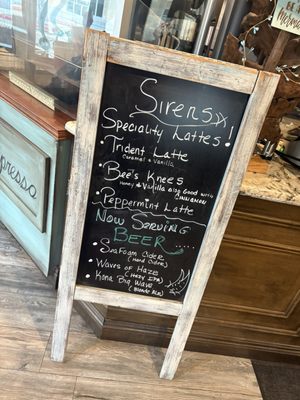 Sirens
Specialty Lattes!
• Trident Latte
Caramel & Vanilla
• Bee's Knees
Honey & Vanilla also Good with
Cinnamon
• Peppermint Latte
Now Serving
BEER.....
• SeaFoam Cider
(Hard Cider)
• Waves of Haze
(Hazy IPA)
• Kona Big Wave
(Blonde Ale)
presso